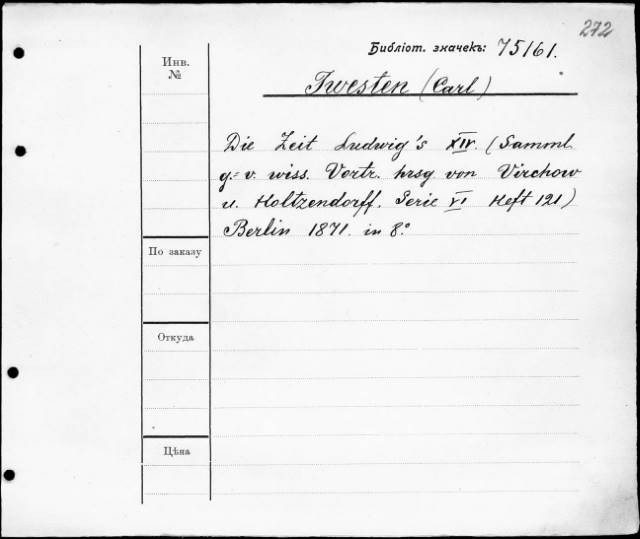 272
Библіот. значекъ: 75/61.
Инв.
№
Twesten (Carl)
Die Zeit Ludwig's XIV. (Samml.
g.-v. wiss. Vortr. hrsg von Virchow
u. Holtzendorff. Serie VI Heft 121)
Berlin 1871. in 8.°
По заказу
Откуда
Цѣна